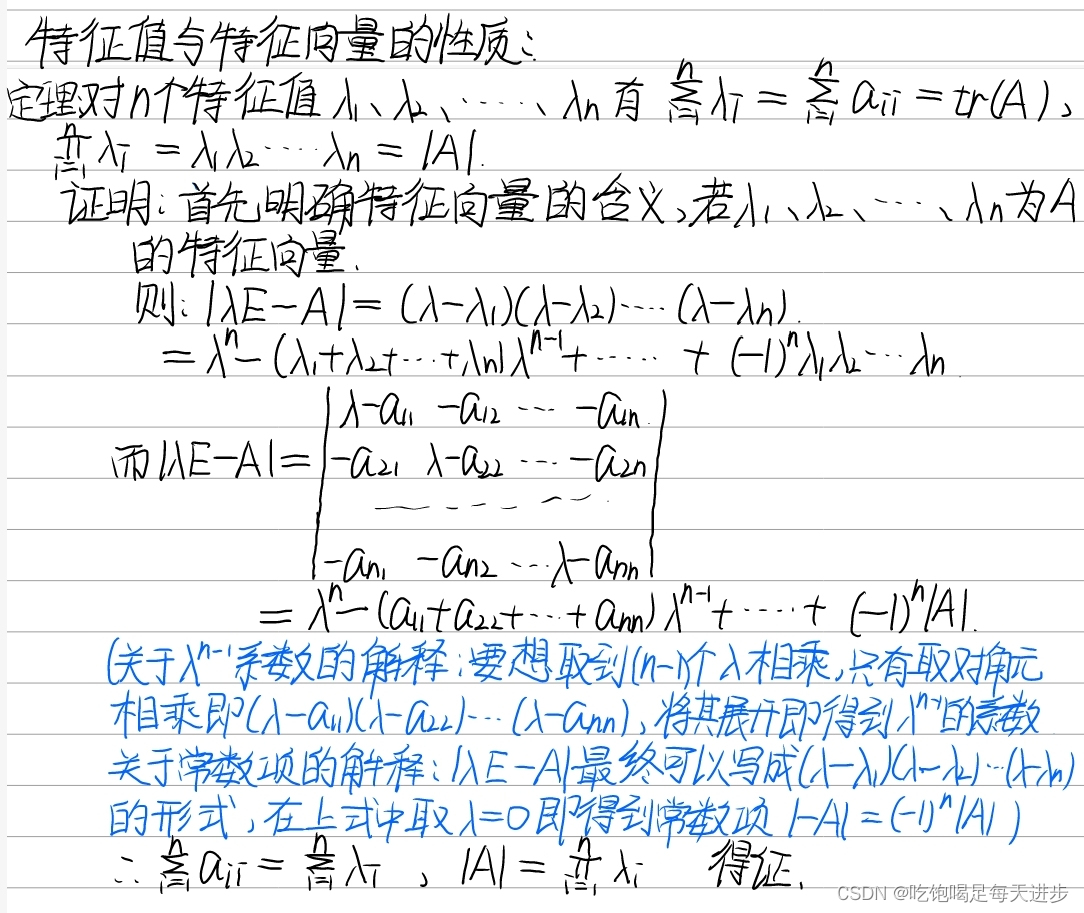 特征值与特征向量的性质:
定理:对n个特征值 λ₁、λ₂、……、λn 有 ∑ⁿᵢ₌₁ λᵢ = ∑ⁿᵢ₌₁ aᵢᵢ = tr(A),
∏ⁿᵢ₌₁ λᵢ = λ₁λ₂……λn = |A|.
证明:首先明确特征向量的含义,若λ₁、λ₂、……、λn为A
的特征向量.
则: |λE-A| = (λ-λ₁)(λ-λ₂)……(λ-λn).
= λⁿ-(λ₁+λ₂+…+λn)λⁿ⁻¹+…… + (-1)ⁿλ₁λ₂…λn
λ-a₁₁ -a₁₂ … -a₁n
而|λE-A|= -a₂₁ λ-a₂₂ … -a₂n
-an₁ -an₂ … λ-ann
= λⁿ-(a₁₁+a₂₂+…+ann)λⁿ⁻¹+……+ (-1)ⁿ|A|.
(关于λⁿ⁻¹系数的解释:要想取到(n-1)个λ相乘,只有取对角元
相乘即(λ-a₁₁)(λ-a₂₂)…(λ-ann),将其展开即得到λⁿ⁻¹的系数
关于常数项的解释:|λE-A|最终可以写成(λ-λ₁)(λ-λ₂)…(λ-λn)
的形式,在上式中取λ=0即得到常数项|-A|=(-1)ⁿ|A|)
∴ ∑ⁿᵢ₌₁ aᵢᵢ = ∑ⁿᵢ₌₁ λᵢ , |A| = ∏ⁿᵢ₌₁ λᵢ 得证.
CSDN @吃饱喝足每天进步